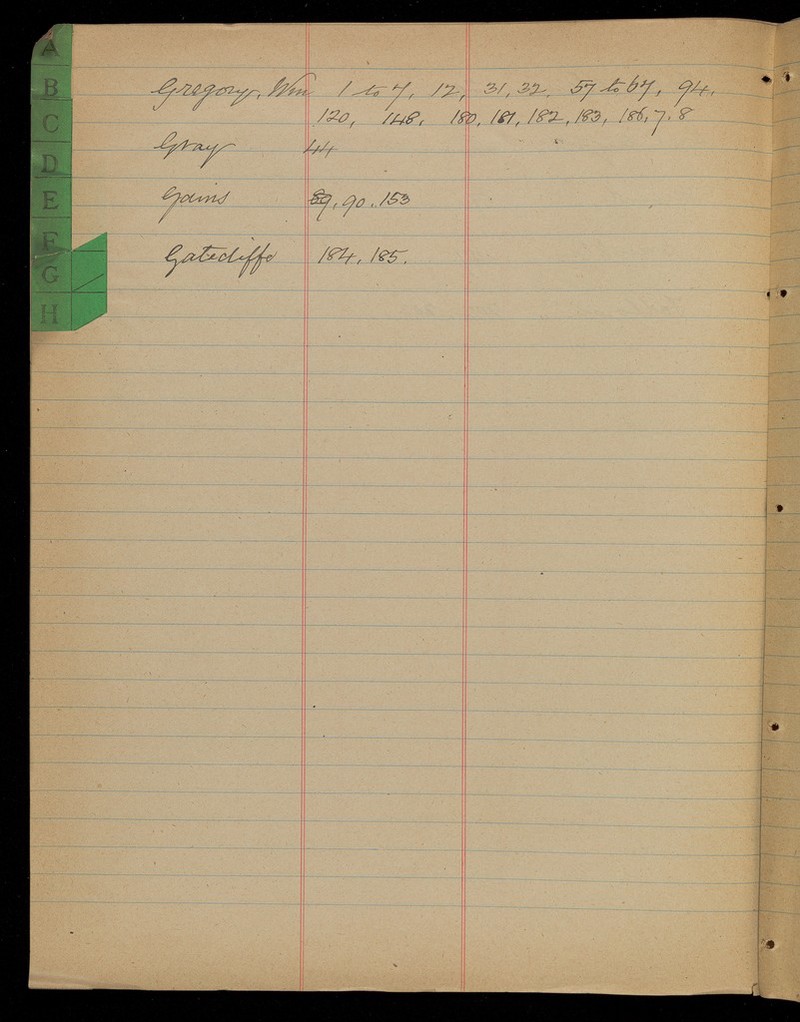 A
B
C
D
E
F
G
H
Gregory, Wm 1 to 7, 12, 31, 32, 57 to 67, 94,
120, 148, 180, 181, 182, 183, 186, 7, 8
Gray 44
Gains 89, 90, 153
Gatecliffe 184, 185.